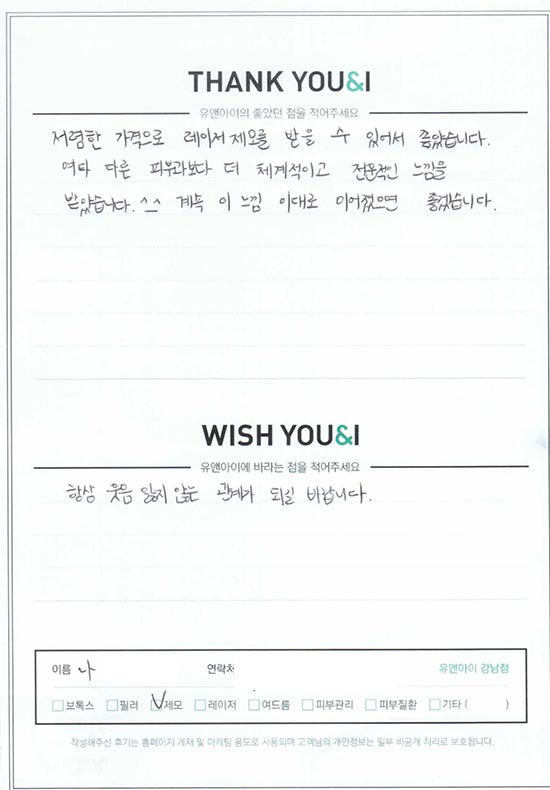 THANK YOU&I
유앤아이의 좋았던 점을 적어주세요
저렴한 가격으로 레이저제모를 받을 수 있어서 좋았습니다.
여타 다른 피부과보다 더 체계적이고 전문적인 느낌을
받았습니다. ^^ 계속 이 느낌 이대로 이어졌으면 좋겠습니다.
WISH YOU&I
유앤아이에 바라는 점을 적어주세요
항상 웃음 잃지 않는 관계가 되길 바랍니다.
이름 나 연락처 유앤아이 강남점
보톡스 필러 제모 레이저 여드름 피부관리 피부질환 기타 ( )
작성해주신 후기는 홈페이지 게재 및 마케팅 용도로 사용되며 고객님의 개인정보는 일부 비공개 처리로 보호됩니다.